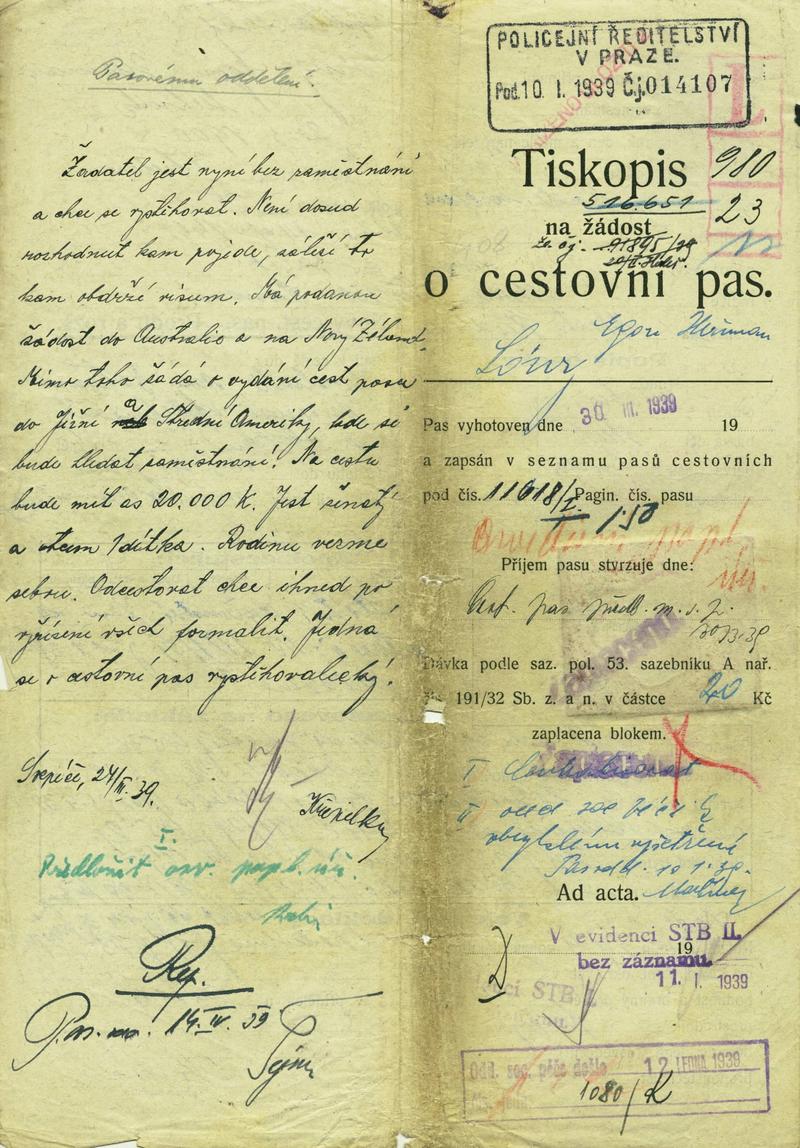 Pasovému oddělení.
Žadatel jest nyní bez zaměstnání
a chce se vystihovat. Není dosud
rozhodnut kam pojede, záleží to
kam obdrží visum. Má podanou
žádost do Australie a na Nový Zéland.
Mimo toho žádá o vydání cest. pasu
do Jižní a Střední Ameriky, kde si
bude hledat zaměstnání. Na cestu
bude mít as 20.000 K. Jest ženatý
a otcem 1 dítka. Rodinu vezme
sebou. Odcestovat chce ihned po
vyřízení všech formalit. Jedná
se o cestovní pas vystěhovalecký.
24/III. 39.
I.
Předložit osv. papl.
Rep.
14. IV. 39
POLICEJNÍ ŘEDITELSTVÍ
V PRAZE.
Pod. 10 I. 1939 Čj. 014107
Tiskopis
980
516.651
23
na žádost
o cestovní pas.
Egon Heřman
Löwy
Pas vyhotoven dne 30 III. 1939 19
a zapsán v seznamu pasů cestovních
pod čís. 11618/I Pagin. čís. pasu
150
Příjem pasu stvrzuje dne:
Cest. pas předl. m. s. p.
Dávka podle saz. pol. 53. sazebníku A nař.
čís. 191/32 Sb. z. a n. v částce 20 Kč
zaplacena blokem.
I
II
Ad acta.
V evidenci STB II.
19
bez záznamu.
11. I. 1939
D
Odd. soc. péče došlo 12 LEDNA 1939
1080/K